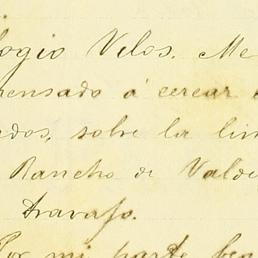 logio Velos. Me
pensado á cercar
dos, sobre la lin
Rancho de Valde
travajo.
Por mi parte